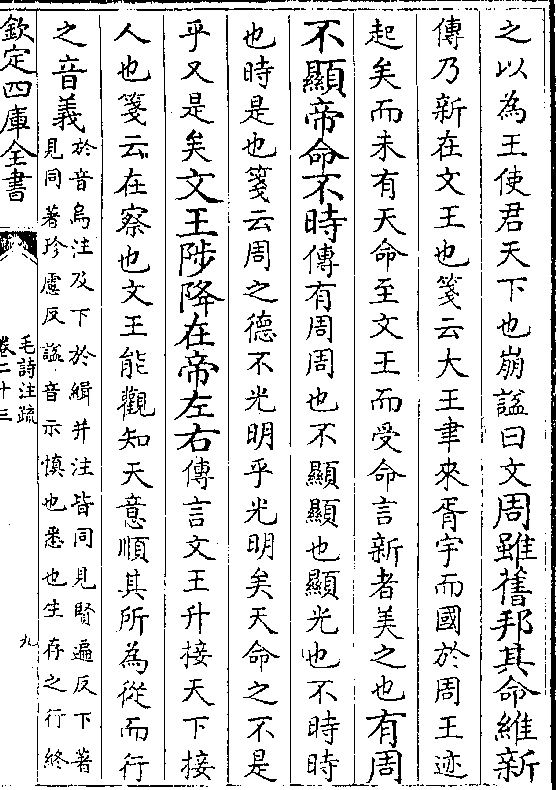 之以為王使君天下也崩諡曰文周雖舊邦其命維新
傳乃新在文王也箋云大王聿來胥宇而國於周王迹
起矣而未有天命至文王而受命言新者美之也有周
不顯帝命不時傳有周周也不顯顯也顯光也不時時
也時是也箋云周之德不光明乎光明矣天命之不是
乎又是矣文王陟降在帝左右傳言文王升接天下接
人也箋云在察也文王能觀知天意順其所為從而行
之音義
於音烏注及下於緝并注皆同見賢遍反下著
見同著珍慮反諡音示慎也悉也生存之行終
欽定四庫全書
毛詩注疏
卷二十三
九